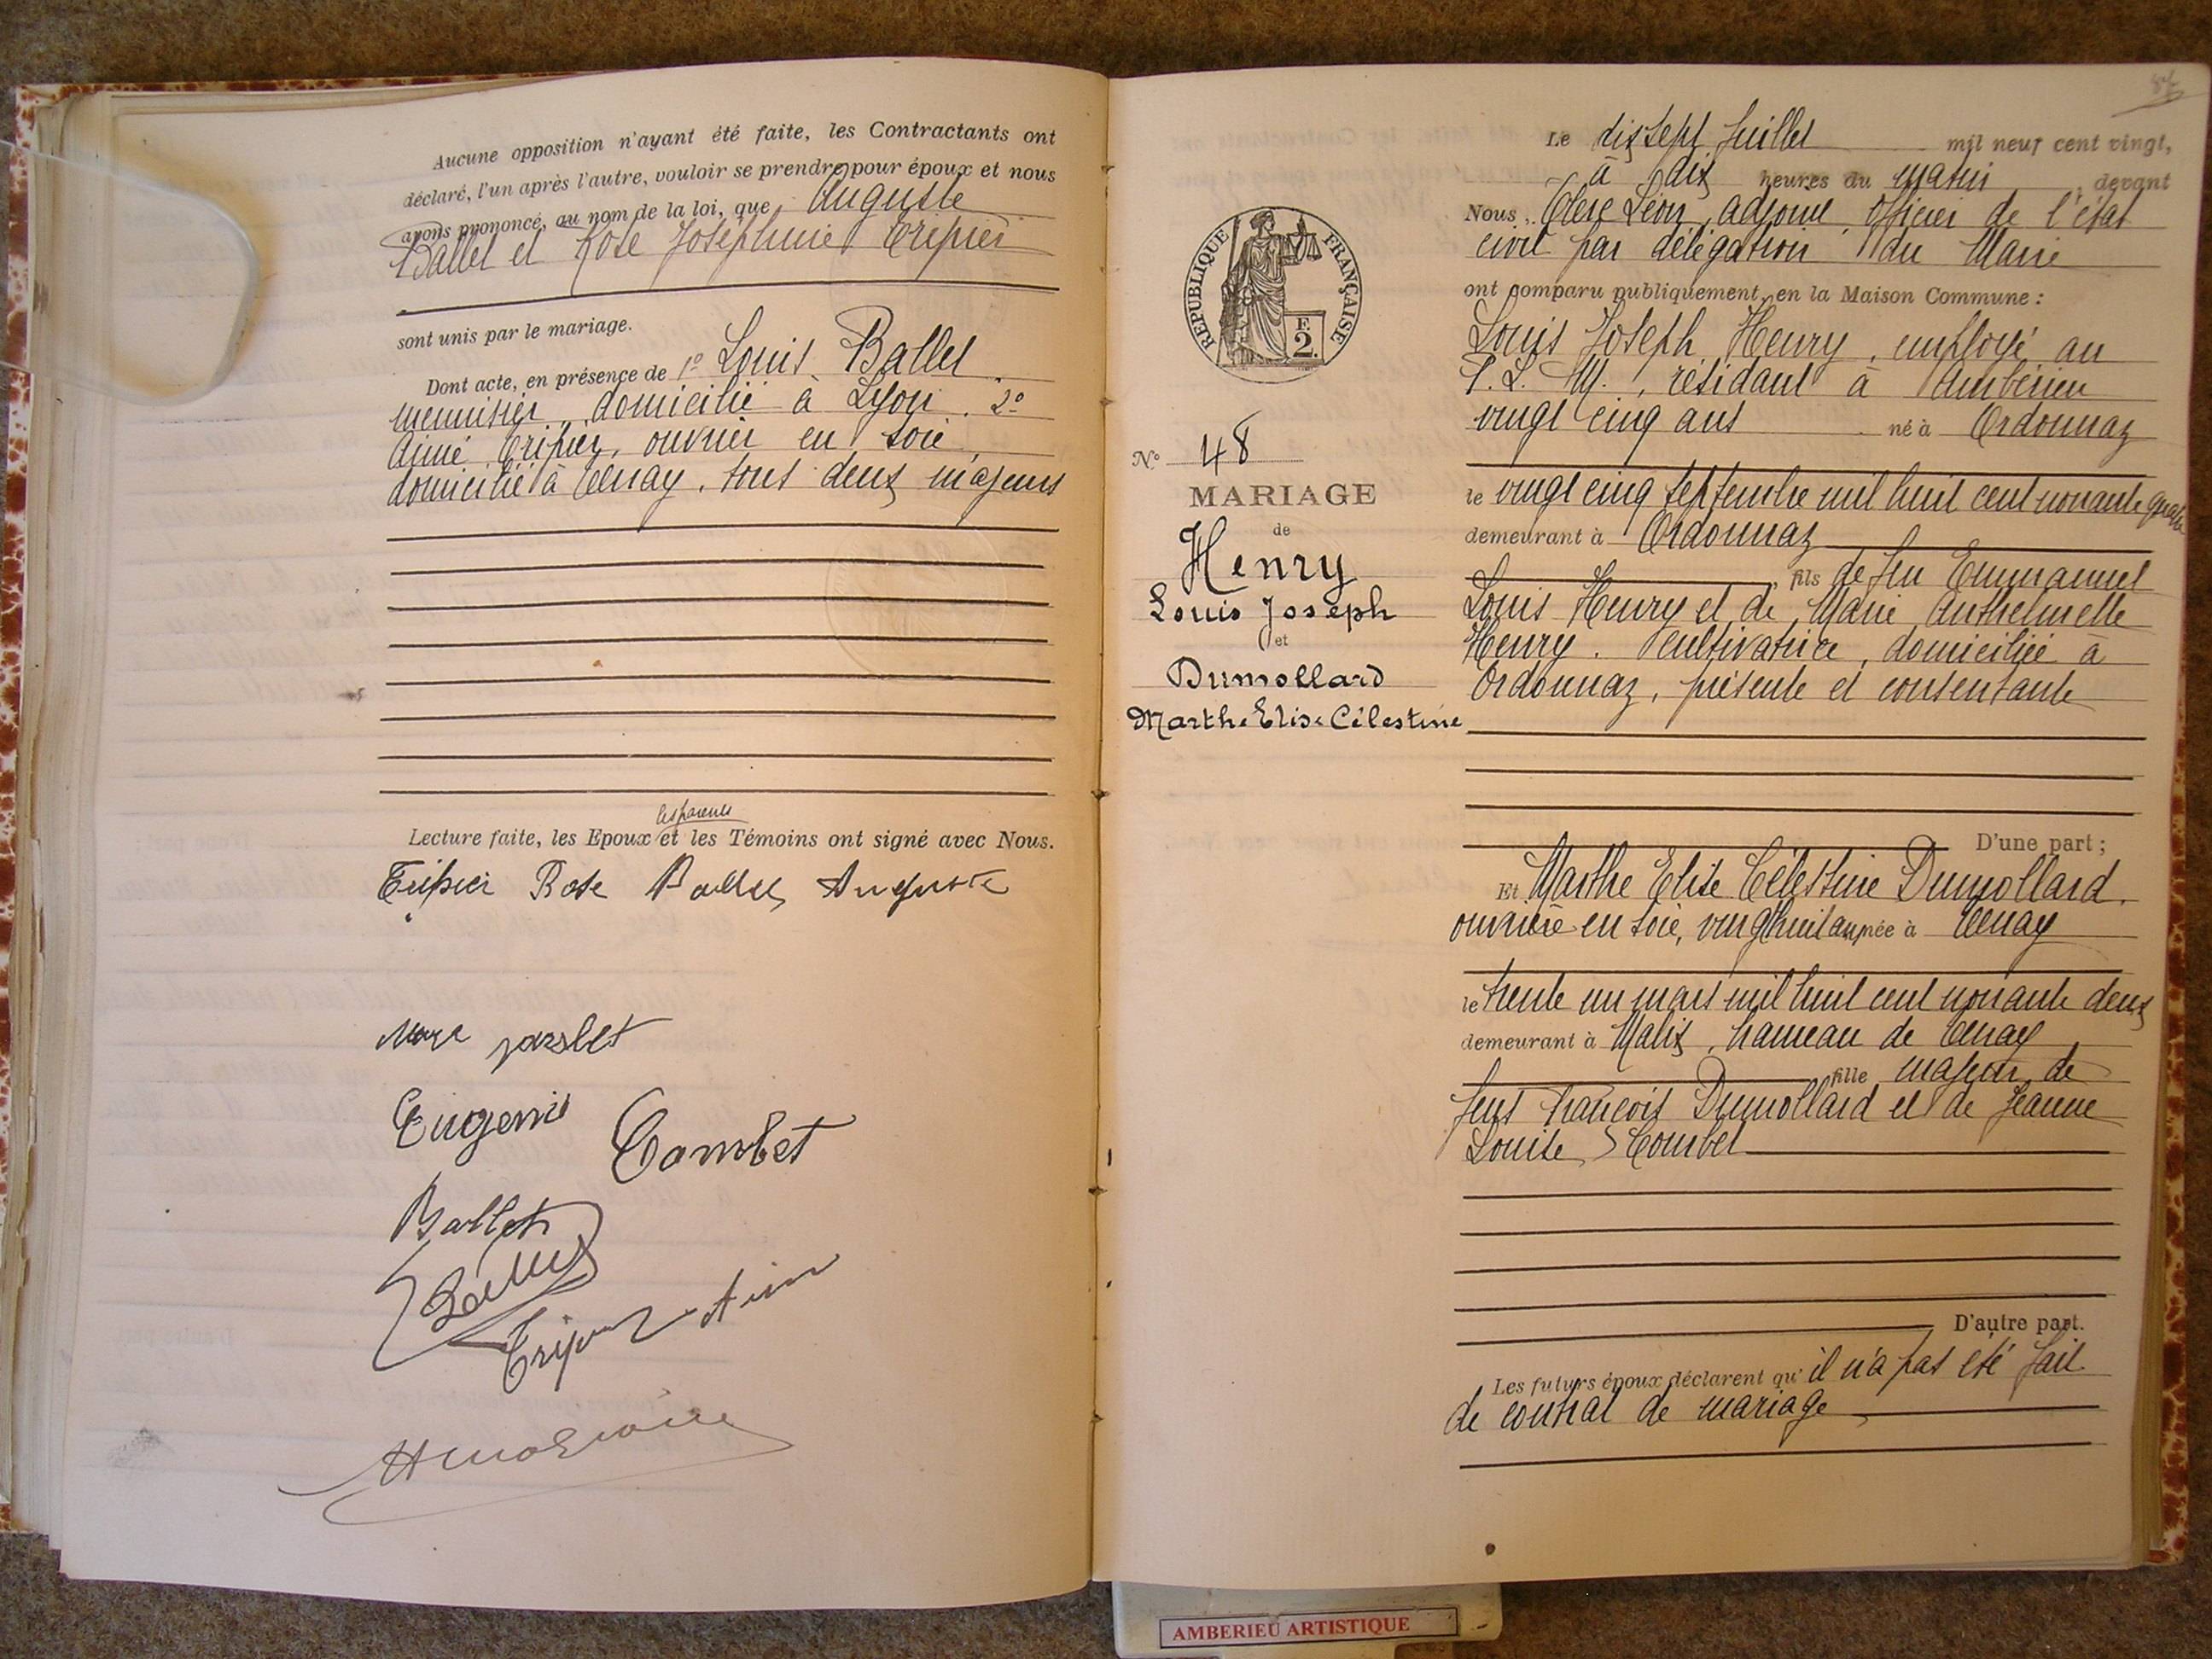 Aucune opposition n'ayant été faite, les Contractants ont
déclaré, l'un après l'autre, vouloir se prendre pour époux et nous
avons prononcé, au nom de la loi, que Auguste
Ballet et Rose Joséphine Tripier
sont unis par le mariage.
Dont acte, en présence de 1º Louis Ballet
menuisier, domicilié à Lyon. 2º
Aimé Tripier, ouvrier en soie
domicilié à Tenay. tous deux majeurs
les parents
Lecture faite, les Epoux et les Témoins ont signé avec Nous.
Tripier Rose Ballet Auguste
Eugenie
Combet
Ballet
Ballet
Tripier
84
Le dix sept Juillet mil neuf cent vingt,
à dix heures du matin, devant
Nous, Clerc Léon, adjoint, officier de l'état
civil par délégation du Maire
ont comparu publiquement en la Maison Commune :
Louis Joseph Henry, employé au
P. L. M., résidant à Ambérieu
vingt cinq ans né à Ordonnaz
le vingt cinq septembre mil huit cent nonante quatre
demeurant à Ordonnaz
, fils de feu Emmanuel
Louis Henry et de Marie Anthelmette
Henry. cultivatrice, domiciliée à
Ordonnaz, présente et consentante
D'une part ;
Et Marthe Elise Célestine Dumollard.
ouvrière en soie, vingt huit ans née à Tenay
le trente un mars mil huit cent nonante deux
demeurant à Malix, hameau de Tenay
fille majeur de
feus François Dumollard et de Jeanne
Louise Combet
D'autre part.
Les futurs époux déclarent qu'il n'a pas été fait
de contrat de mariage
RÉPUBLIQUE FRANÇAISE
F.
2.
Nº 48
MARIAGE
de
Henry
Louis Joseph
et
Dumollard
Marthe Elise Célestine
AMBERIEU ARTISTIQUE